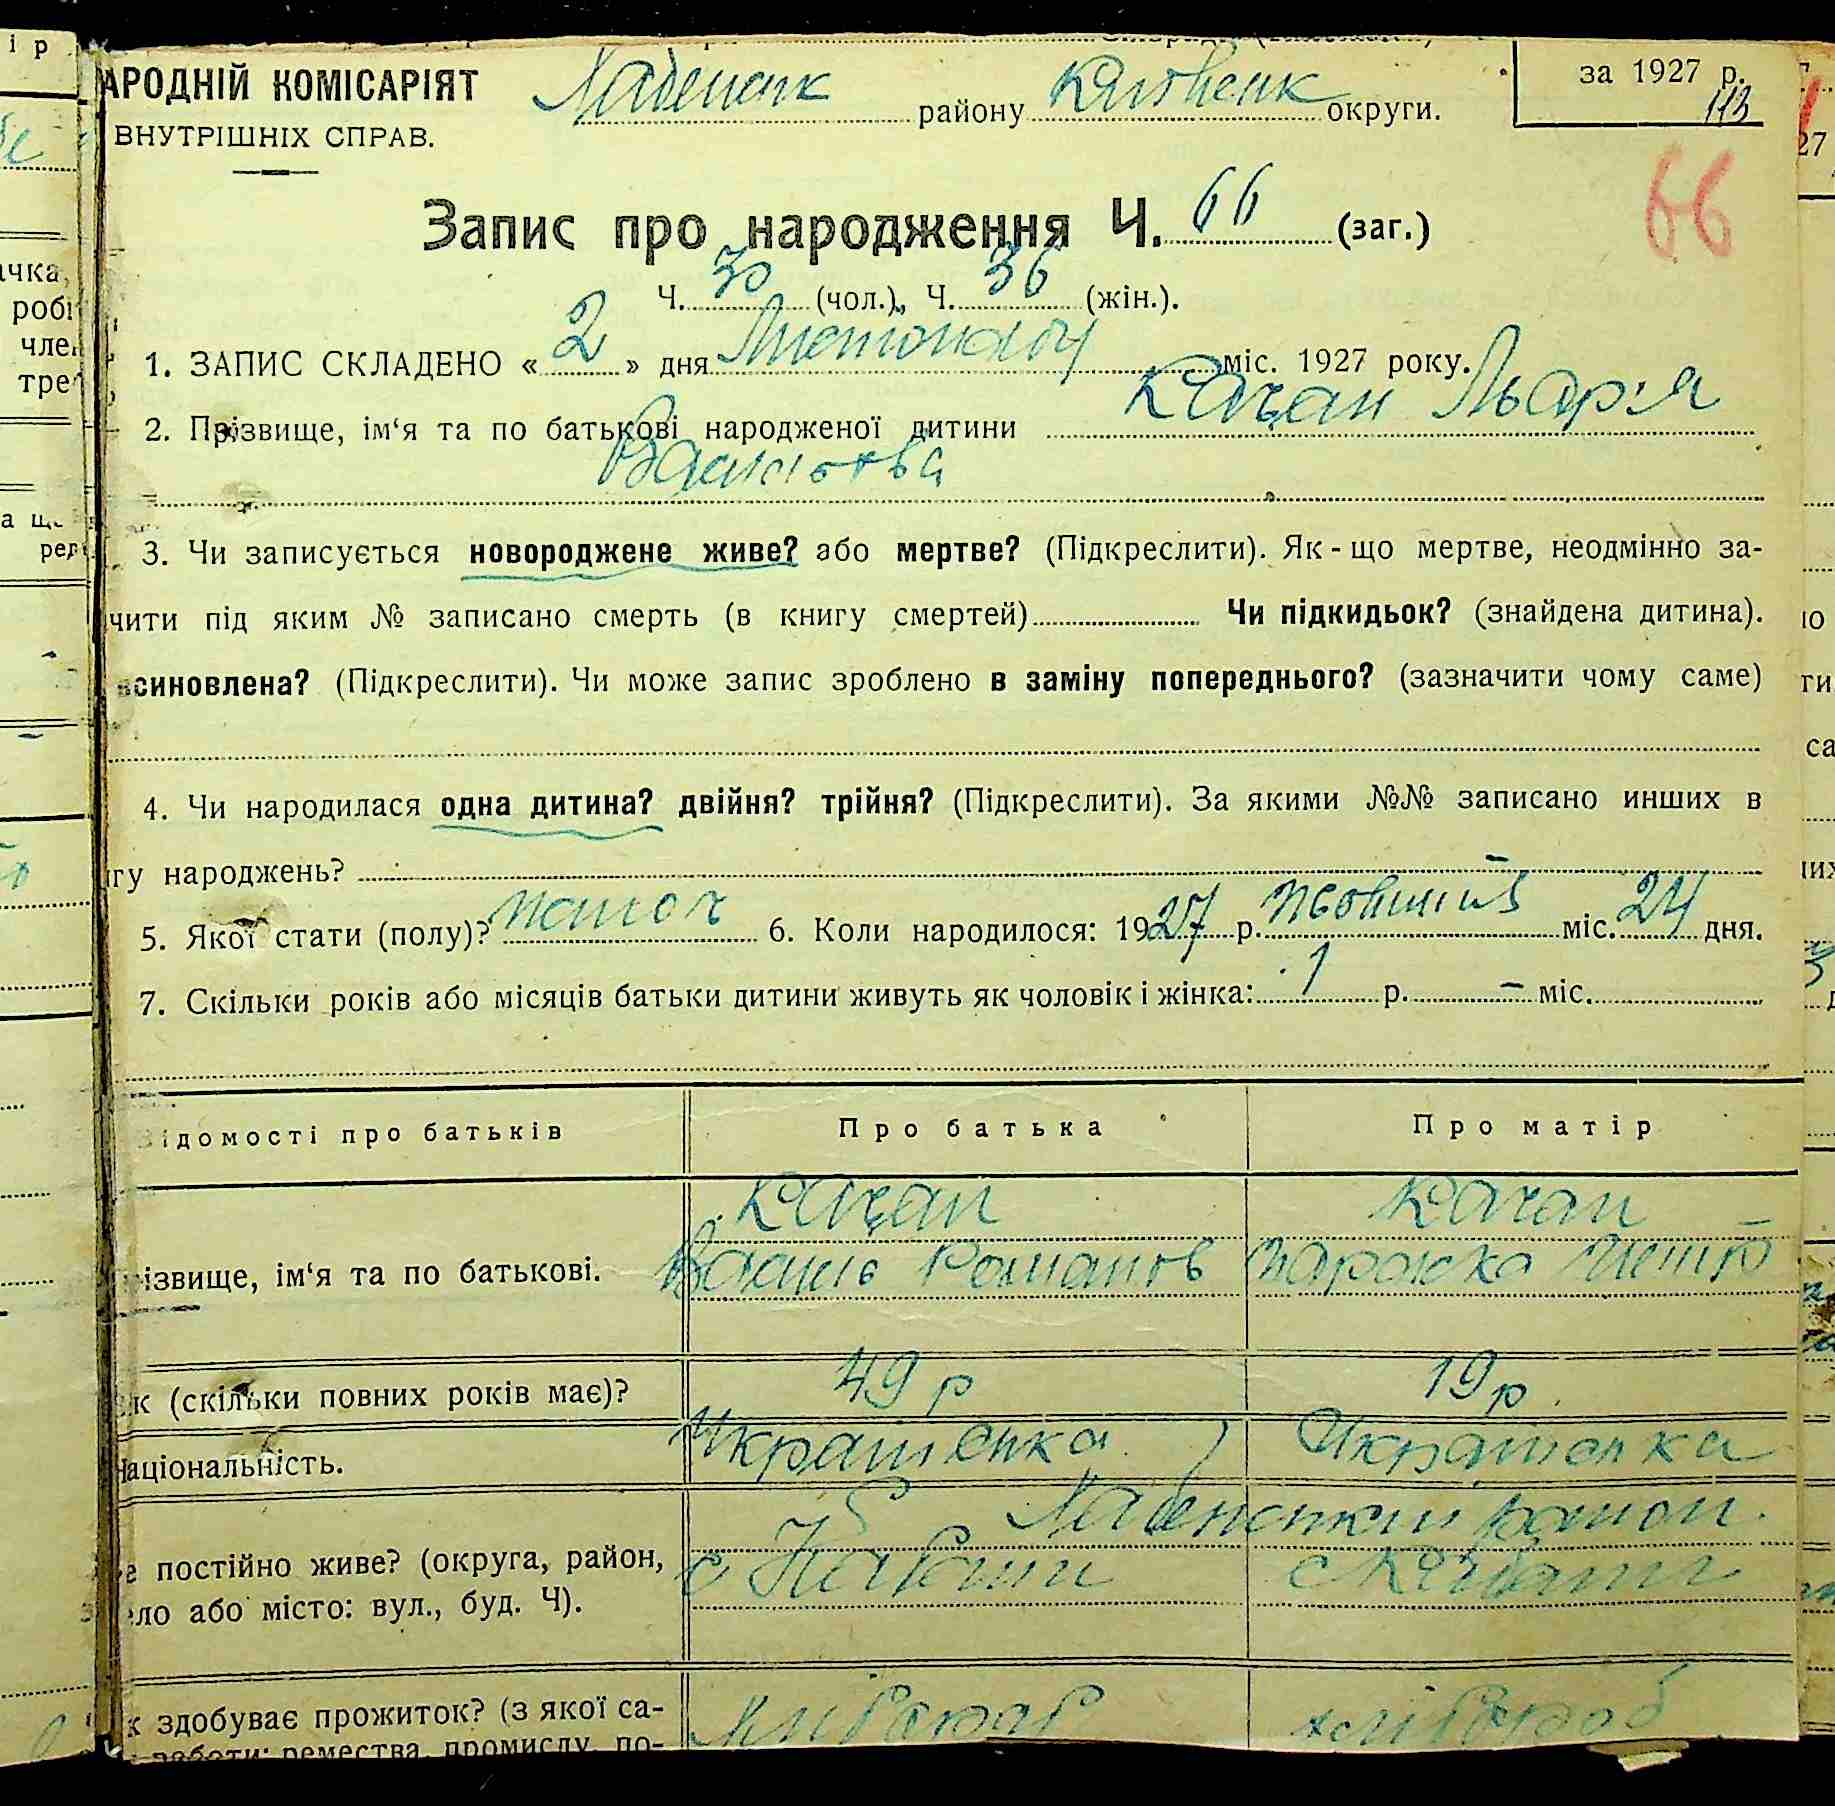 АРОДНІЙ КОМІСАРІЯТ
ВНУТРІШНІХ СПРАВ.
Хабенськ району округи.
за 1927 р.
113
66
Запис про народження Ч. 66 (заг.)
Ч. 30 (чол.), Ч. 36 (жін.).
1. ЗАПИС СКЛАДЕНО « 2 » дня Листопада міс. 1927 року.
2. Прізвище, ім'я та по батькові народженої дитини Качан Марія
3. Чи записується новороджене живе? або мертве? (Підкреслити). Як-що мертве, неодмінно за-
чити під яким № записано смерть (в книгу смертей) Чи підкидьок? (знайдена дитина).
синовлена? (Підкреслити). Чи може запис зроблено в заміну попереднього? (зазначити чому саме)
4. Чи народилася одна дитина? двійня? трійня? (Підкреслити). За якими №№ записано инших в
гу народжень? –
5. Якої стати (полу)? жіноч 6. Коли народилося: 1927 р. жовтня міс. 24 дня.
7. Скільки років або місяців батьки дитини живуть як чоловік і жінка: 1 р. – міс.
ідомості про батьків Про батька Про матір
Качан Качан
ізвище, ім'я та по батькові. Василь Романов
к (скільки повних років має)? 49 р 19 р
Національність. Українська Українська
Хабенський район
е постійно живе? (округа, район, с с
ело або місто: вул., буд. Ч).
к здобуває прожиток? (з якої са- хлібороб хлібороб
заботи: ремества, промислу, по-